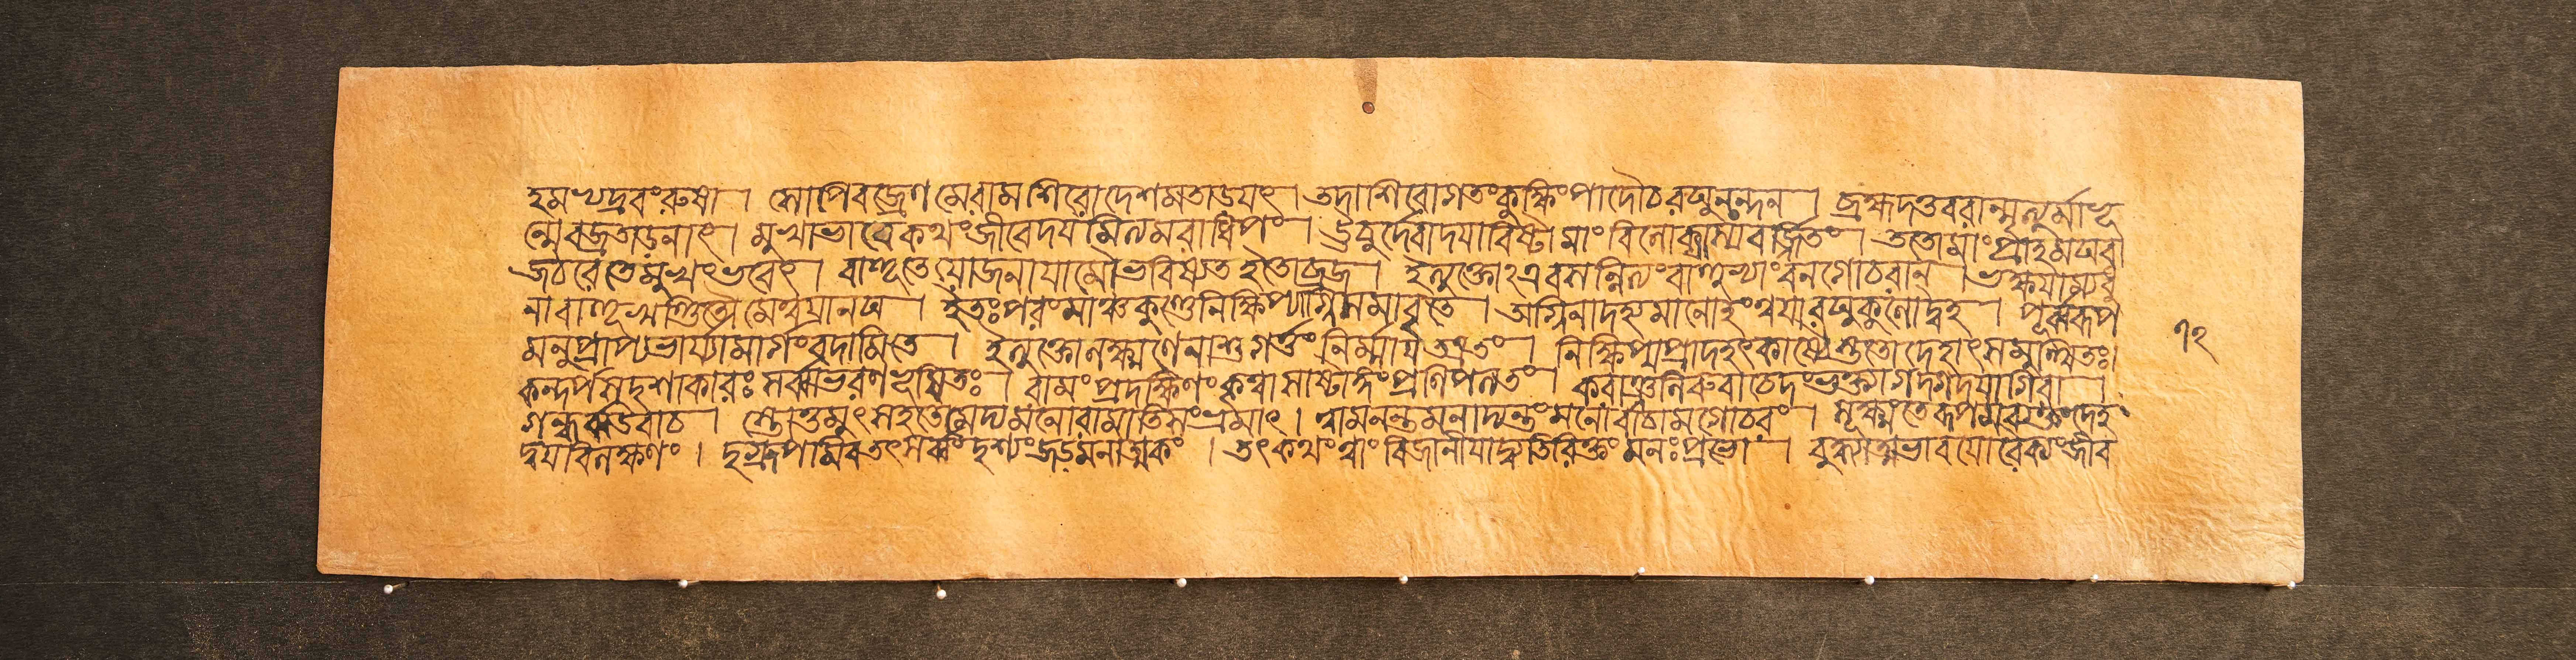 হমপ্যদ্রবং রুষা । সোপি বজ্রেণ মে রাম শিরোদেশমতাড়য়ৎ । তদা শিরো গতং কুক্ষিং পাদৌ চ রঘুনন্দন । ব্রহ্মদত্তবরান্মৃত্যুর্নাভূ
ন্মে বজ্রতাড়নাৎ । মুখাভাবে কথং জীবেদয়মিত্যমরাধিপং । ঊচুর্দেবা দয়াবিষ্টা মাং বিলোক্যাস্যবর্জ্জিতং । ততো মাং প্রাহ মঘবা
জঠরে তে মুখং ভবেৎ । বাহূ তে যোজনায়ামৌ ভবিষ্যত ইতো ব্রজ । ইত্যুক্তোঽত্র বসন্নিত্যং বাহুভ্যাং বনগোচরান্ । ভক্ষয়াম্যধু
না বাহূ খণ্ডিতৌ মে ত্বয়ানঘ । ইতঃ পরং মাঞ্চ কুণ্ডে নিক্ষিপ্যাগ্নিসমাবৃতে । অগ্নিনা দহ্যমানোহং ত্বয়া রঘুকুলোদ্বহ । পূর্ব্বরূপ
মনুপ্রাপ্য ভার্য্যামার্গং বদামি তে । ইত্যুক্তো লক্ষ্মণেনাশু গর্ত্তং নির্ম্মায় তত্র তং । নিক্ষিপ্য প্রাদহৎ কাষ্ঠৈস্ততো দেহাৎ সমুত্থিতঃ ।
কন্দর্পসদৃশাকারঃ সর্ব্বাভরণভূষিতঃ । রামং প্রদক্ষিণং কৃত্বা সাষ্টাঙ্গং প্রণিপত্য তং । কৃতাঞ্জলিরুবাচেদং ভক্ত্যা গদ্গদয়া গিরা ।
গন্ধর্ব্ব উবাচ । স্তোতুমুৎসহতে মেদ্য মনো রামাতিসংভ্রমাৎ । ত্বামনন্তমনাদ্যন্তং মনোবাচামগোচরং । সূক্ষ্মং তে রূপমব্যক্তং দেহ
দ্বয়বিলক্ষণং । দৃগ্রূপমিতরৎ সর্ব্বং দৃশ্যং জড়মনাত্মকং । তৎ কথং ত্বাং বিজানীয়াদ্ব্যতিরিক্তং মনঃ প্রভো । বুদ্ধ্যাত্মাভাসয়োরৈক্যং জীব
১২